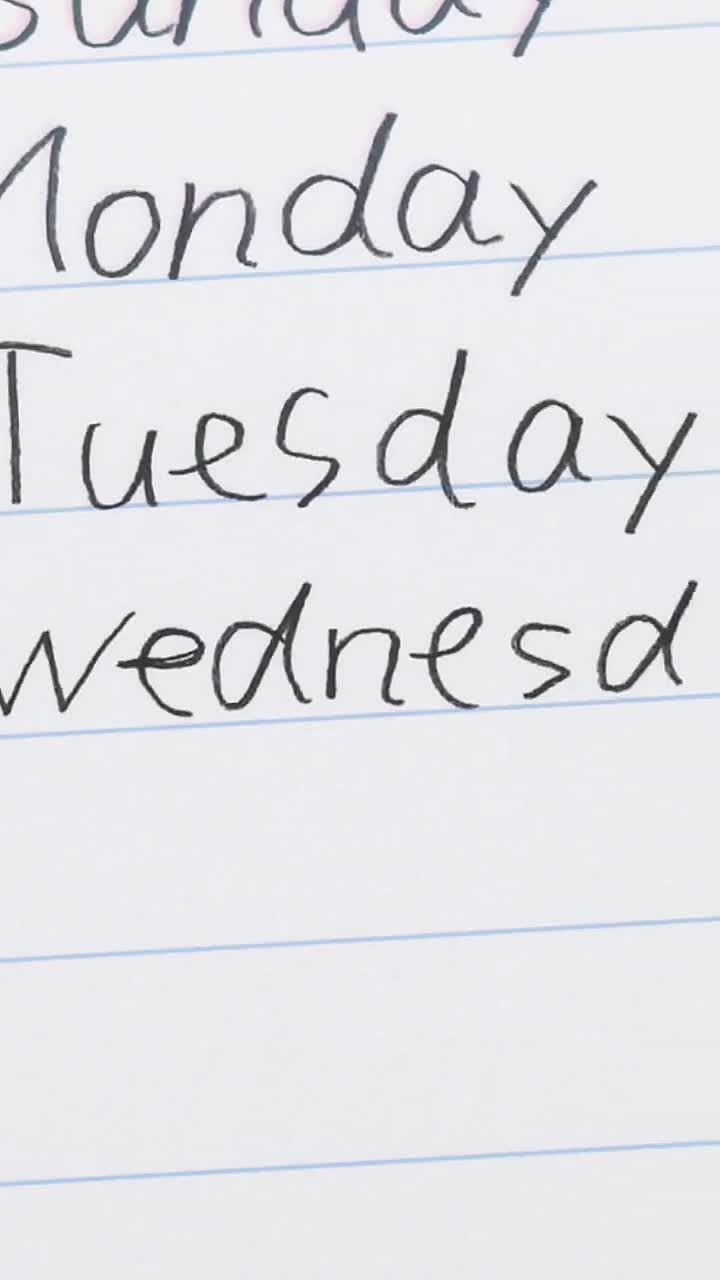 Sunday
Monday
Tuesday
Wednesd